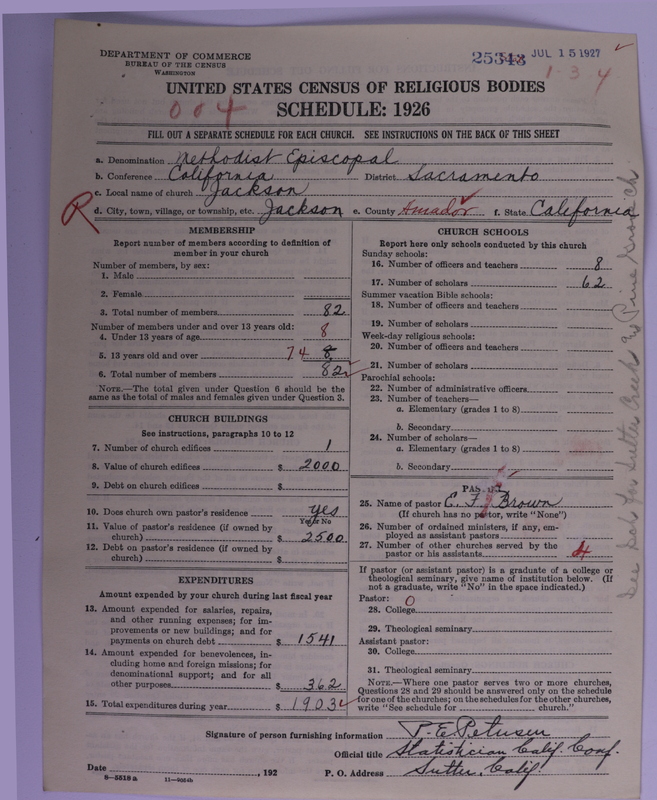 DEPARTMENT OF COMMERCE
BUREAU OF THE CENSUS
WASHINGTON
25343 JUL 15 1927
1-3 4
UNITED STATES CENSUS OF RELIGIOUS BODIES
004
SCHEDULE: 1926
FILL OUT A SEPARATE SCHEDULE FOR EACH CHURCH. SEE INSTRUCTIONS ON THE BACK OF THIS SHEET
a. Denomination Methodist Episcopal
b. Conference California District Sacramento
c. Local name of church Jackson
R
d. City, town, village, or township, etc. Jackson e. County Amador f. State California
MEMBERSHIP
Report number of members according to definition of
member in your church
Number of members, by sex:
1. Male
2. Female
3. Total number of members 82
Number of members under and over 13 years old:
4. Under 13 years of age 8
5. 13 years old and over 74 8
6. Total number of members 82
NOTE.—The total given under Question 6 should be the
same as the total of males and females given under Question 3.
CHURCH BUILDINGS
See instructions, paragraphs 10 to 12
7. Number of church edifices 1
8. Value of church edifices $ 2000
9. Debt on church edifices $
10. Does church own pastor's residence yes
Yes or No
11. Value of pastor's residence (if owned by
church) $ 2500
12. Debt on pastor's residence (if owned by
church) $
EXPENDITURES
Amount expended by your church during last fiscal year
13. Amount expended for salaries, repairs,
and other running expenses; for im-
provements or new buildings; and for
payments on church debt $ 1541
14. Amount expended for benevolences, in-
cluding home and foreign missions; for
denominational support; and for all
other purposes $ 362
15. Total expenditures during year $ 1903
CHURCH SCHOOLS
Report here only schools conducted by this church
Sunday schools:
16. Number of officers and teachers 8
17. Number of scholars 62
Summer vacation Bible schools:
18. Number of officers and teachers
19. Number of scholars
Week-day religious schools:
20. Number of officers and teachers
21. Number of scholars
Parochial schools:
22. Number of administrative officers
23. Number of teachers—
a. Elementary (grades 1 to 8)
b. Secondary
24. Number of scholars—
a. Elementary (grades 1 to 8)
b. Secondary
PASTOR
25. Name of pastor E. F. Brown
(If church has no pastor, write "None")
26. Number of ordained ministers, if any, em-
ployed as assistant pastors
27. Number of other churches served by the
pastor or his assistants 4
If pastor (or assistant pastor) is a graduate of a college or
theological seminary, give name of institution below. (If
not a graduate, write "No" in the space indicated.)
Pastor: 0
28. College
29. Theological seminary
Assistant pastor:
30. College
31. Theological seminary
NOTE.—Where one pastor serves two or more churches,
Questions 28 and 29 should be answered only on the schedule
for one of the churches; on the schedules for the other churches,
write "See schedule for church."
See Sch for Sutter Creek Pine Grove Ch
Signature of person furnishing information P. E. Petersen
Official title Statistician Calif. Conf.
Date , 192 P. O. Address Sutter, Calif.
8-5518 a